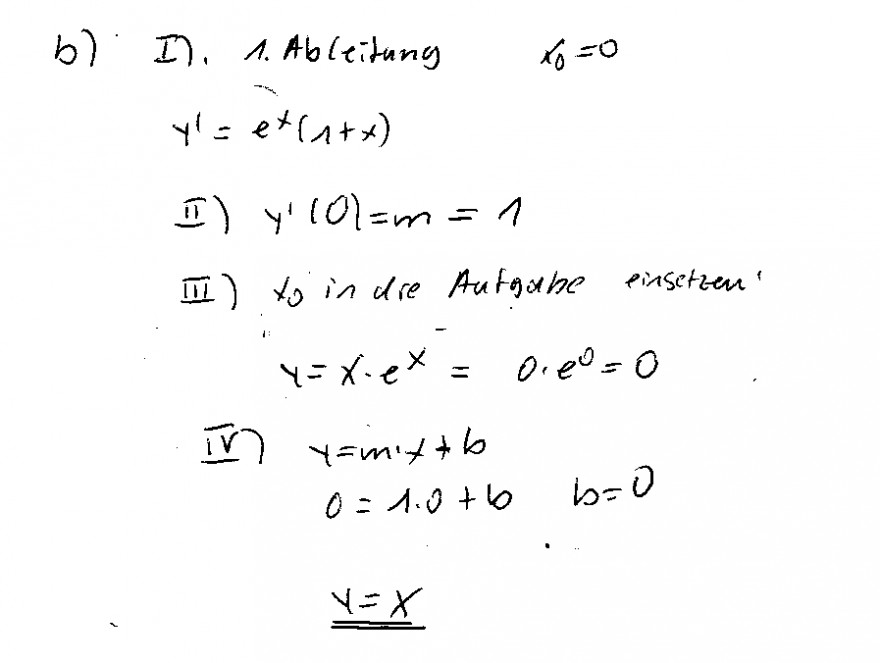 b) I). 1. Ableitung x₀=0
y' = eˣ(1+x)
II) y'(0)=m = 1
III) x₀ in die Aufgabe einsetzen
y = x·eˣ = 0·e⁰ = 0
IV) y=m·x+b
0 = 1·0 + b b=0
y = x